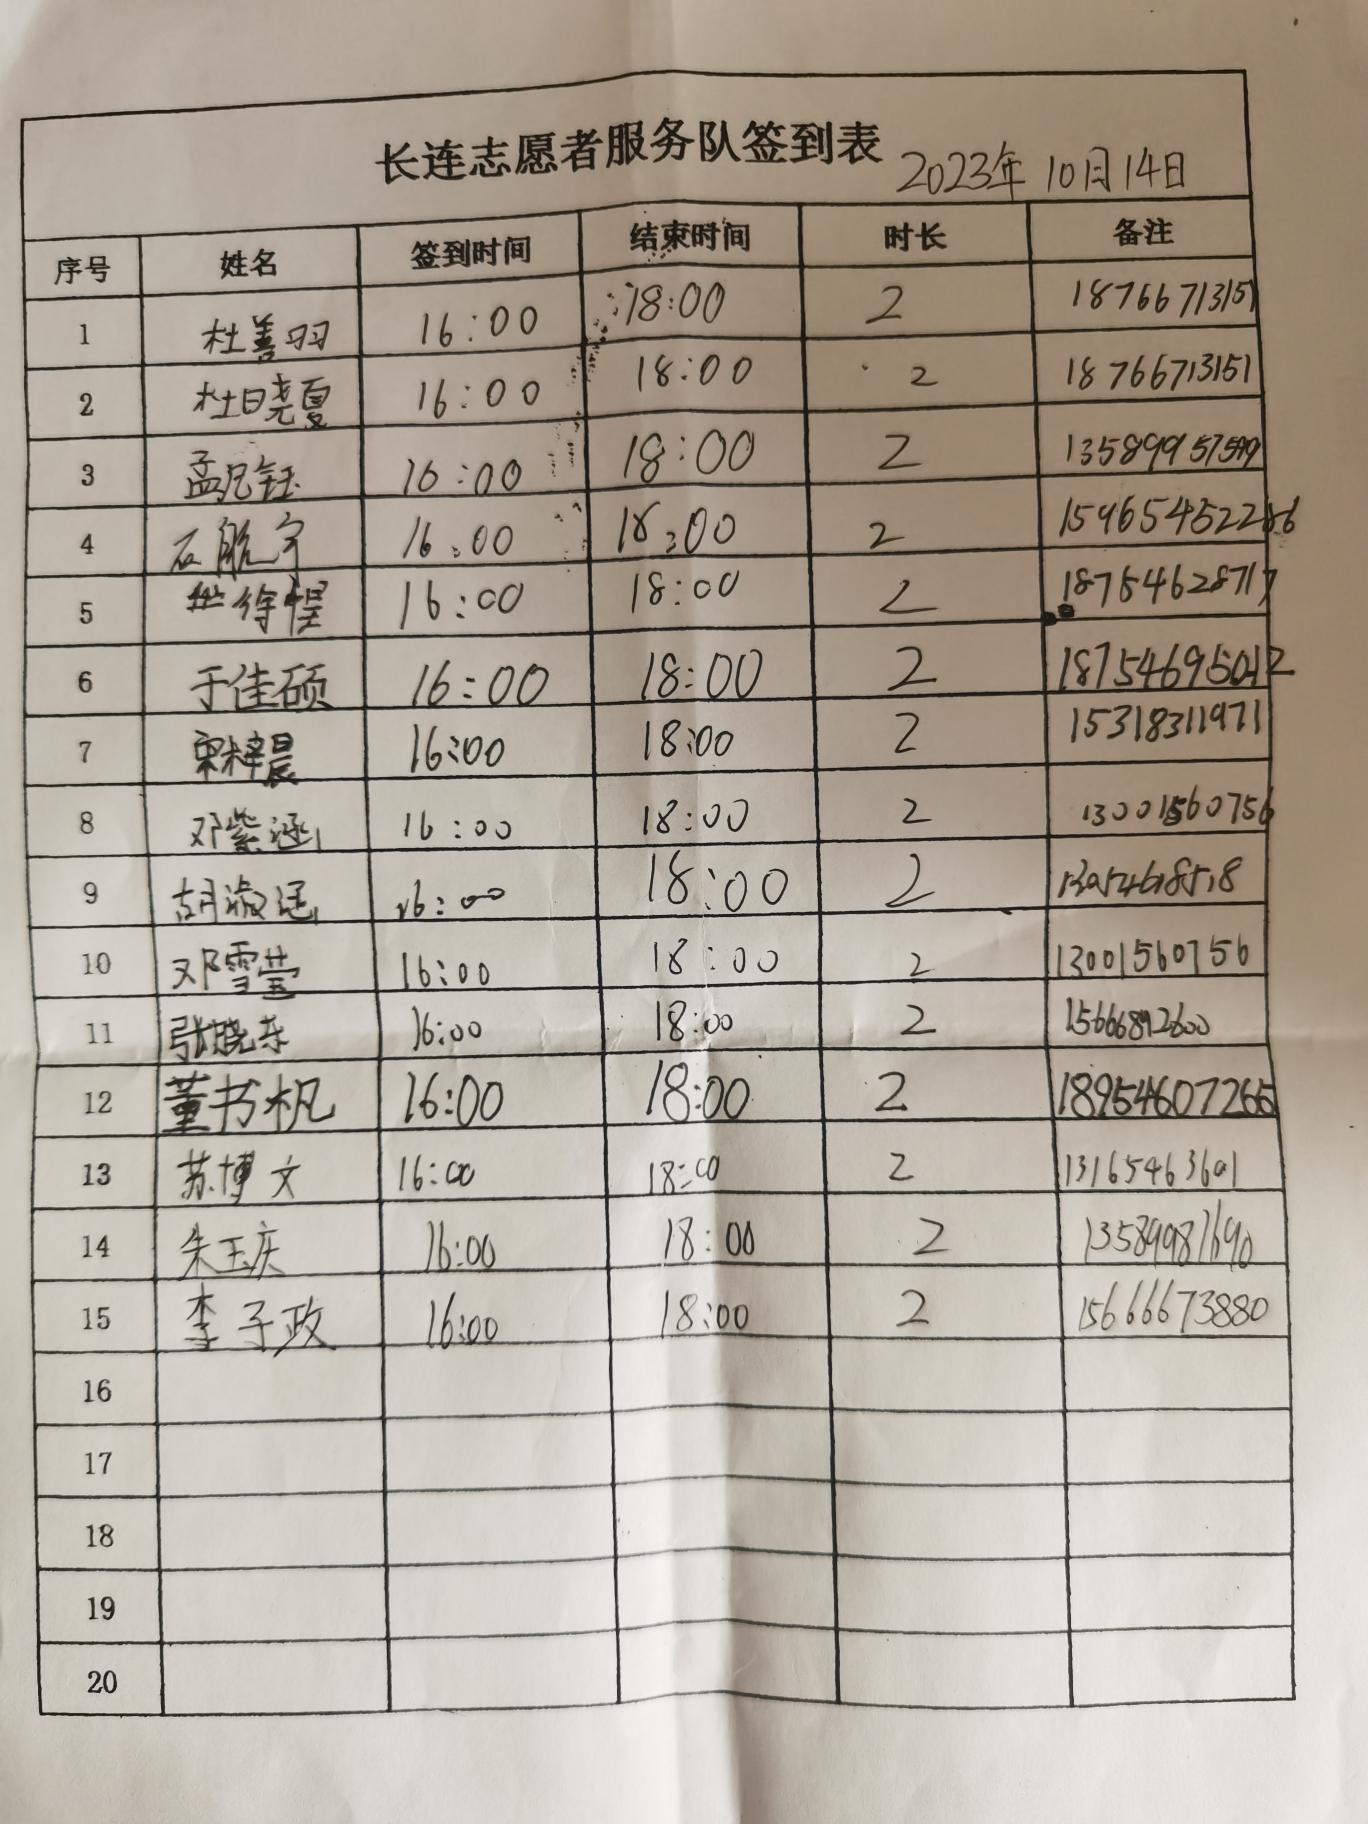 长连志愿者服务队签到表 2023年10月14日
序号 姓名 签到时间 结束时间 时长 备注
1 杜善羽 16:00 18:00 2 18766713151
2 杜晓夏 16:00 18:00 2 18766713151
3 16:00 18:00 2
4 石航宇 16:00 18:00 2
5 16:00 18:00 2 18754628717
6 于佳硕 16:00 18:00 2 18754695012
7 梓晨 16:00 18:00 2 15318311971
8 邓紫涵 16:00 18:00 2 13001560756
9 胡淑涵 16:00 18:00 2
10 邓雪莹 16:00 18:00 2 13001560756
11 张晓东 16:00 18:00 2 15666892600
12 董书枫 16:00 18:00 2 18954607265
13 苏博文 16:00 18:00 2 13165463601
14 朱玉庆 16:00 18:00 2 13589981690
15 李子政 16:00 18:00 2 15666673880
16
17
18
19
20